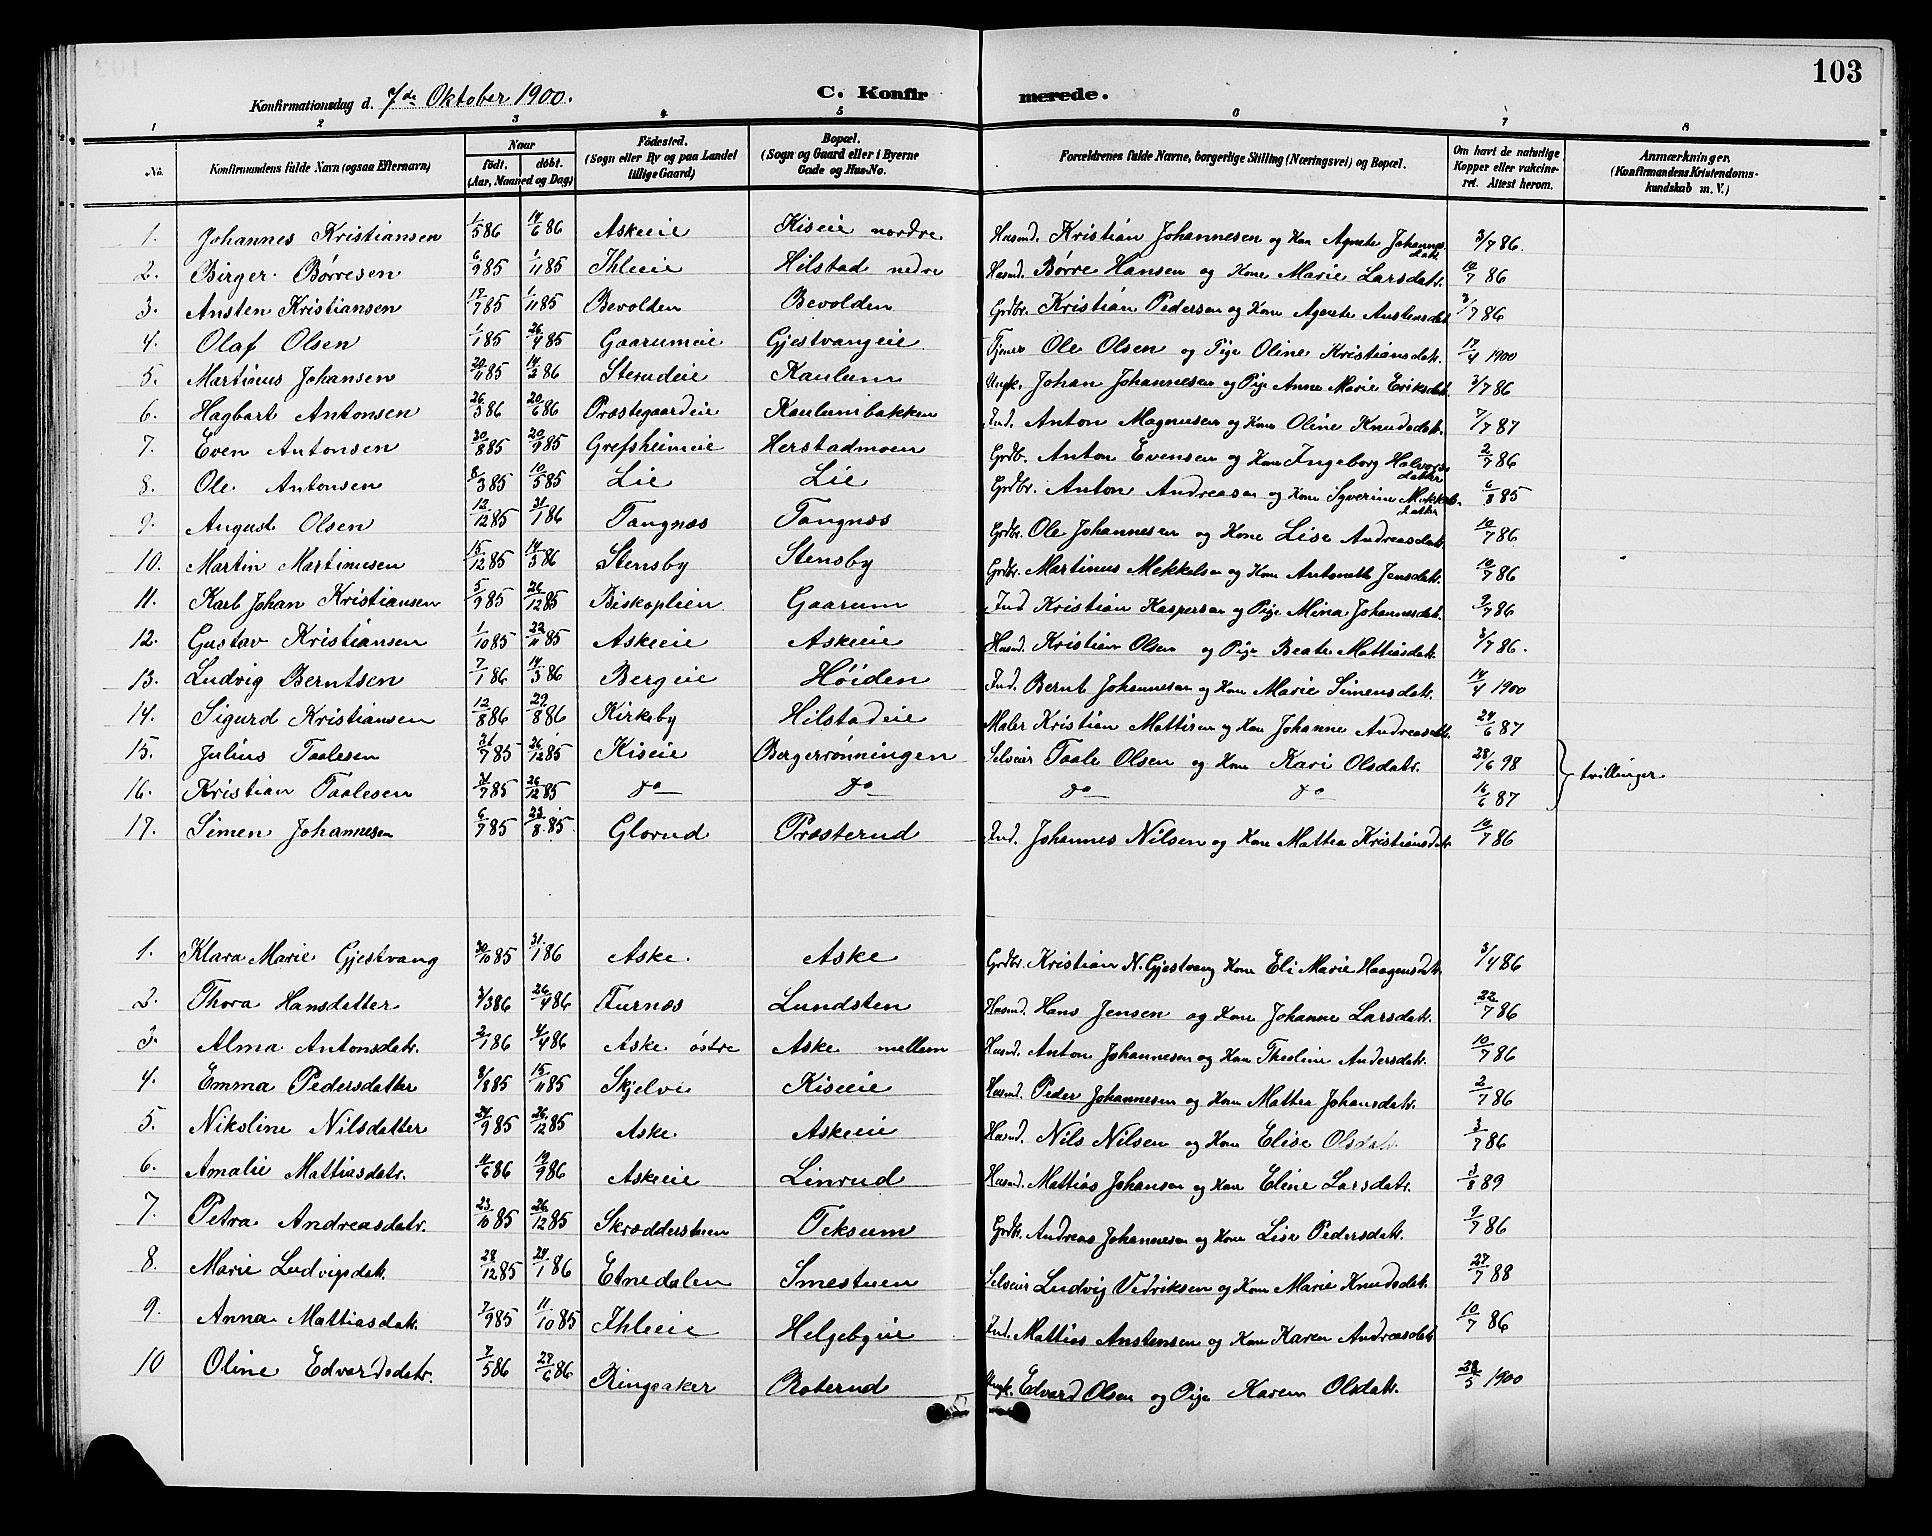 103
Konfirmationsdag d. 7de Oktober 1900. C. Konfirmerede.
1 2 3 4 5 6 7 8
No. Konfirmandens fulde Navn (ogsaa Efternavn) Naar født. døbt. (Aar, Maaned og Dag) Fødested. (Sogn eller By og paa Landet tillige Gaard) Bopæl. (Sogn og Gaard eller i Byerne Gade og Hus-No. Forældrenes fulde Navne, borgerlige Stilling (Næringsvei) og Bopæl. Om havt de naturlige Kopper eller vaccineret. Attest herom. Anmærkninger. (Konfirmandens Kristendomskundskab m. V.)
1. Johannes Kristiansen 1/5 86 14/6 86 Askeie Kiseie nordre Husmd. Kristian Johannesen og Kone Agnete Johannesdatr. 3/7 86.
2. Birger Børresen 6/9 85 1/11 85 Ihleie Hilstad nedre Husmd. Børre Hansen og Kone Marie Larsdatr. 10/7 86
3. Ansten Kristiansen 17/7 85 1/11 85 Bevolden Bevolden Grdbr. Kristian Pedersen og Kone Agnete Anstensdat. 3/7 86
4. Olaf Olsen 1/1 85 26/4 85 Gaarumeie Gjestvangeie Tjener Ole Olsen og Pige Oline Kristiansdatr. 17/4 1900
5. Martinus Johansen 20/11 85 14/3 86 Sterudeie Kaulum Ungk. Johan Johannesen og Pige Anne Marie Eriksdat. 3/7 86
6. Hagbart Antonsen 26/3 86 20/6 86 Præstegaardeie Kaulumbakken Ind. Anton Magnusen og Kone Oline Knudsdatr. 7/7 87
7. Even Antonsen 30/8 85 20/9 85 Grefsheimeie Herstadmoen Grdb. Anton Evensen og Kone Ingeborg Halvorsdatter 2/7 86
8. Ole Antonsen 8/3 85 10/5 85 Lie Lie Grdbr. Anton Andreasen og Kone Syverine Mekkelsdatter 6/8 85
9. August Olsen 12/12 85 31/1 86 Tangnæs Tangnæs Grdbr. Ole Johannesen og Kone Lise Andreasdatr. 10/7 86
10. Martin Martinusen 15/12 85 14/3 86 Stensby Stensby Grdbr. Martinus Mekkelsen og Kone Antonette Jensdatr. 10/7 86
11. Karl Johan Kristiansen 5/9 85 26/12 85 Biskoplien Gaarum Ind. Kristian Kaspersen og Pige Mina Johannesdatr. 9/7 86
12. Gustav Kristiansen 1/10 85 22/11 85 Askeeie Askeeie Husmd. Kristian Olsen og Pige Beate Mattiasdatr. 3/7 86.
13. Ludvig Berntsen 7/1 86 14/3 86 Bergeie Høiden Ind. Bernt Johannesen og Kone Marie Simensdatr. 14/4 1900
14. Sigurd Kristiansen 12/8 86 29/8 86 Kirkeby Hilstadeie Maler Kristian Mattisen og Kone Johanne Andreasdatr. 24/6 87
15. Julius Taalesen 21/7 85 26/12 85 Kiseie Bergerønningen Selveier Taale Olsen og Kone Kari Olsdatr. 28/6 98 } tvillinger
16. Kristian Taalesen 21/7 85 26/12 85 do do do do 16/6 87
17. Simen Johannesen 6/7 85 23/8 85. Glorud Præsterud Ind. Johannes Nilsen og Kone Mattea Kristiansdatr. 10/7 86
1. Klara Marie Gjestvang 30/10 85 31/1 86 Aske. Aske Grdbr. Kristian N. Gjestvang Kone Eli Marie Haagensdtr. 3/4 86
2. Thora Hansdatter 3/3 86 26/4 86 Furnæs Lundsten Husmd. Hans Jensen og Kone Johanne Larsdatr. 22/7 86
3. Alma Antonsdatr. 2/1 86 4/4 86 Aske østre Aske mellem Husmd. Anton Johannesen og Kone Theoline Andersdatr. 10/7 86
4. Emma Pedersdatter 8/8 85 15/11 85 Skjelve Kiseeie Husmd. Peder Johannesen og Kone Mattea Johansdatr. 2/7 86
5. Nikoline Nilsdatter 24/9 85 26/12 85 Aske. Askeeie Husmd. Nils Nilsen og Kone Elise Olsdatr. 3/7 86
6. Amalie Mattiasdatr. 11/6 86 19/9 86 Askeeie Linrud Husmd. Mattias Johansen og Kone Eline Larsdatr. 3/8 89
7. Petra Andreasdatr. 23/10 85 26/12 85 Skræddersteen Teksum Grdbr. Andreas Johannesen og Kone Lise Pedersdatr. 9/7 86
8. Marie Ludvigsdatr. 28/12 85 24/1 86 Etnedalen Smestuen Selveier Ludvig Vedriksen og Kone Marie Knudsdatr. 27/7 88
9. Anna Mattiasdatr. 7/9 85 11/10 85 Ihleie Helgebyeie Ind. Mattias Anstensen og Kone Karen Andreasdatr. 10/7 86
10 Oline Edvardsdatr. 7/5 86 27/6 86 Ringsaker Roterud Ungk. Edvard Olsen og Pige Karen Olsdatr. 28/5 1900